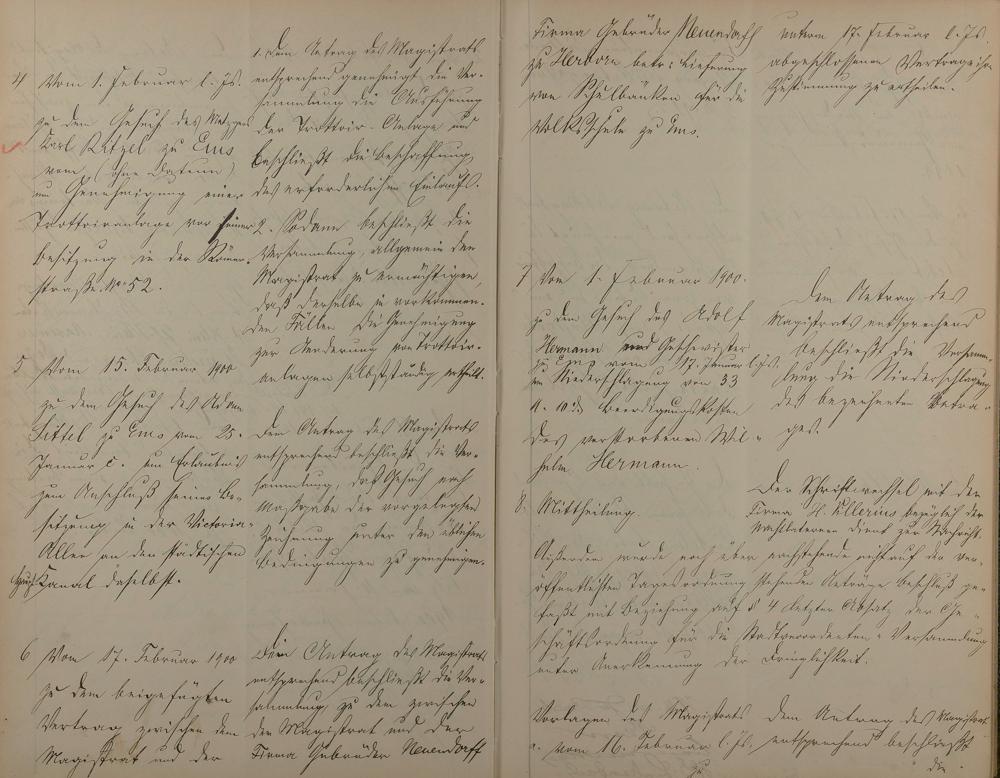 4 Vom 1. Februar l. Js.
zu dem Gesuch des Metzgers
Karl Ritzel zu Ems
vom (ohne Datum)
um Genehmigung einer
Trottoiranlage vor seiner
Besitzung in der Römer-
straße No 52.
1. Dem Antrag des Magistrats
entsprechend genehmigt die Ver-
sammlung die Ausführung
der Trottoir-Anlage und
beschließt die Beschaffung
des erforderlichen Einlaufs.
2. Sodann beschließt die
Versammlung, allgemein den
Magistrat zu ermächtigen,
daß derselbe in vorkommen-
den Fällen die Genehmigung
zur Aenderung von Trottoir-
anlagen selbstständig ertheilt.
5 Vom 15. Februar 1900
zu dem Gesuch des Adam
Sittel zu Ems vom 25.
Januar c. um Erlaubnis
zum Anschluß seines Be-
sitzung in der Victoria-
Allee an den städtischen
Kanal daselbst.
Dem Antrag des Magistrats
entsprechend beschließt die Ver-
sammlung, das Gesuch nach
Maßgabe der vorgelegten
Zeichnung unter den üblichen
Bedingungen zu genehmigen.
6 Vom 17. Februar 1900
zu dem beigefügten
Vertrag zwischen dem
Magistrat und der
Dem Antrag des Magistrats
entsprechend beschließt die Ver-
sammlung, zu dem zwischen
dem Magistrat und der
Firma Gebrüder Neuendorff
Firma Gebrüder Neuendorff
zu Herborn betr: Lieferung
von Schulbänken für die
Volksschule zu Ems.
unterm 17. Februar l. Js.
abgeschlossenen Vertrage ihre
Zustimmung zu ertheilen.
7 Vom 1. Februar 1900.
zu dem Gesuch des Adolf
Hermann und Geschwister
zu Ems vom 17. Januar l. Js.
um Niederschlagung von 33
M. 10 d. Beerdigungskosten
des verstorbenen Wil-
helm Hermann.
Dem Antrag des
Magistrats entsprechend
beschließt die Versamm-
lung die Niederschlagung
des bezeichneten Betra-
ges.
8. Mittheilung.
Der Schriftwechsel mit der
Firma H. Killerius bezüglich der
dient zur Nachricht.
Außerdem wurde noch über nachstehende nicht auf der ver-
öffentlichten Tagesordnung stehenden Anträge Beschluß ge-
faßt mit Beziehung auf § 4 letzter Absatz der Ge-
schäftsordnung für die Stadtverordneten-Versammlung
unter Anerkennung der Dringlichkeit.
Vorlagen des Magistrats
a. vom 16. Februar l. Js.
zu
Dem Antrag des Magistrats
entsprechend beschließt
die